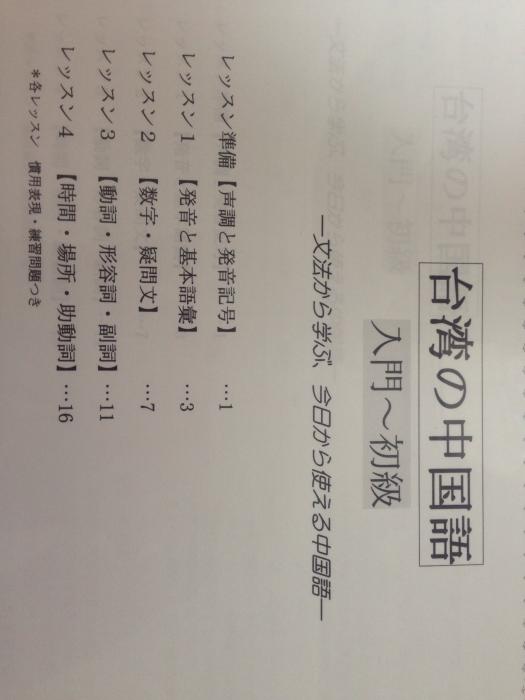 台湾の中国語
入門～初級
―文法から学ぶ、今日から使える中国語―
レッスン準備【声調と発音記号】 …1
レッスン1 【発音と基本語彙】 …3
レッスン2 【数字・疑問文】 …7
レッスン3 【動詞・形容詞・副詞】 …11
レッスン4 【時間・場所・助動詞】 …16
*各レッスン 慣用表現・練習問題つき